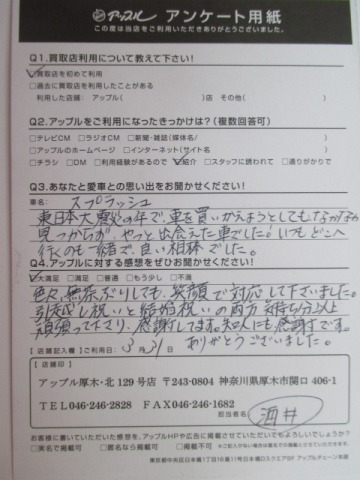 アップル アンケート用紙
この度は当店をご利用いただきありがとうございました。
Q1.買取店利用について教えて下さい!
☑買取店を初めて利用
□過去に買取店を利用したことがある
利用した店舗: アップル( )店 その他( )
Q2.アップルをご利用になったきっかけは?(複数回答可)
□テレビCM □ラジオCM □新聞・雑誌(媒体名/ )
□アップルのホームページ □インターネット(サイト名 )
□チラシ □DM □利用経験があるので ☑紹介 □スタッフに誘われて □通りがかりで
Q3.あなたと愛車との思い出をお聞かせください!
車名: スプラッシュ
東日本大震災の年で、車を買いかえようとしてもなかなか
見つからず、やっと出会えた車でした!いつもどこへ
行くのも一緒で、良い相棒でした。
Q4.アップルに対する感想をぜひお聞かせください!
☑大満足 □満足 □普通 □もう少し □不満
色々、無茶ぶりしても、笑顔で対応して下さいました。
引越し祝いと結婚祝いの両方、気持ち分以上
頑張って下さり、感謝してます。知人にも感謝です。
ありがとうございました。
【店舗記入欄】ご利用日: 3月31日
【店舗印】
アップル厚木・北129号店 〒243-0804 神奈川県厚木市関口406-1
TEL046-246-2828 FAX046-246-1682
担当者名 酒井
お客様に書いていただいた感想を、アップルHPや広告に掲載させていただいてもよろしいでしょうか?
□実名で掲載可 □匿名なら掲載可 □掲載不可
東京都中央区日本橋1丁目16番11号日本橋DスクエアBF アップルチェーン本部